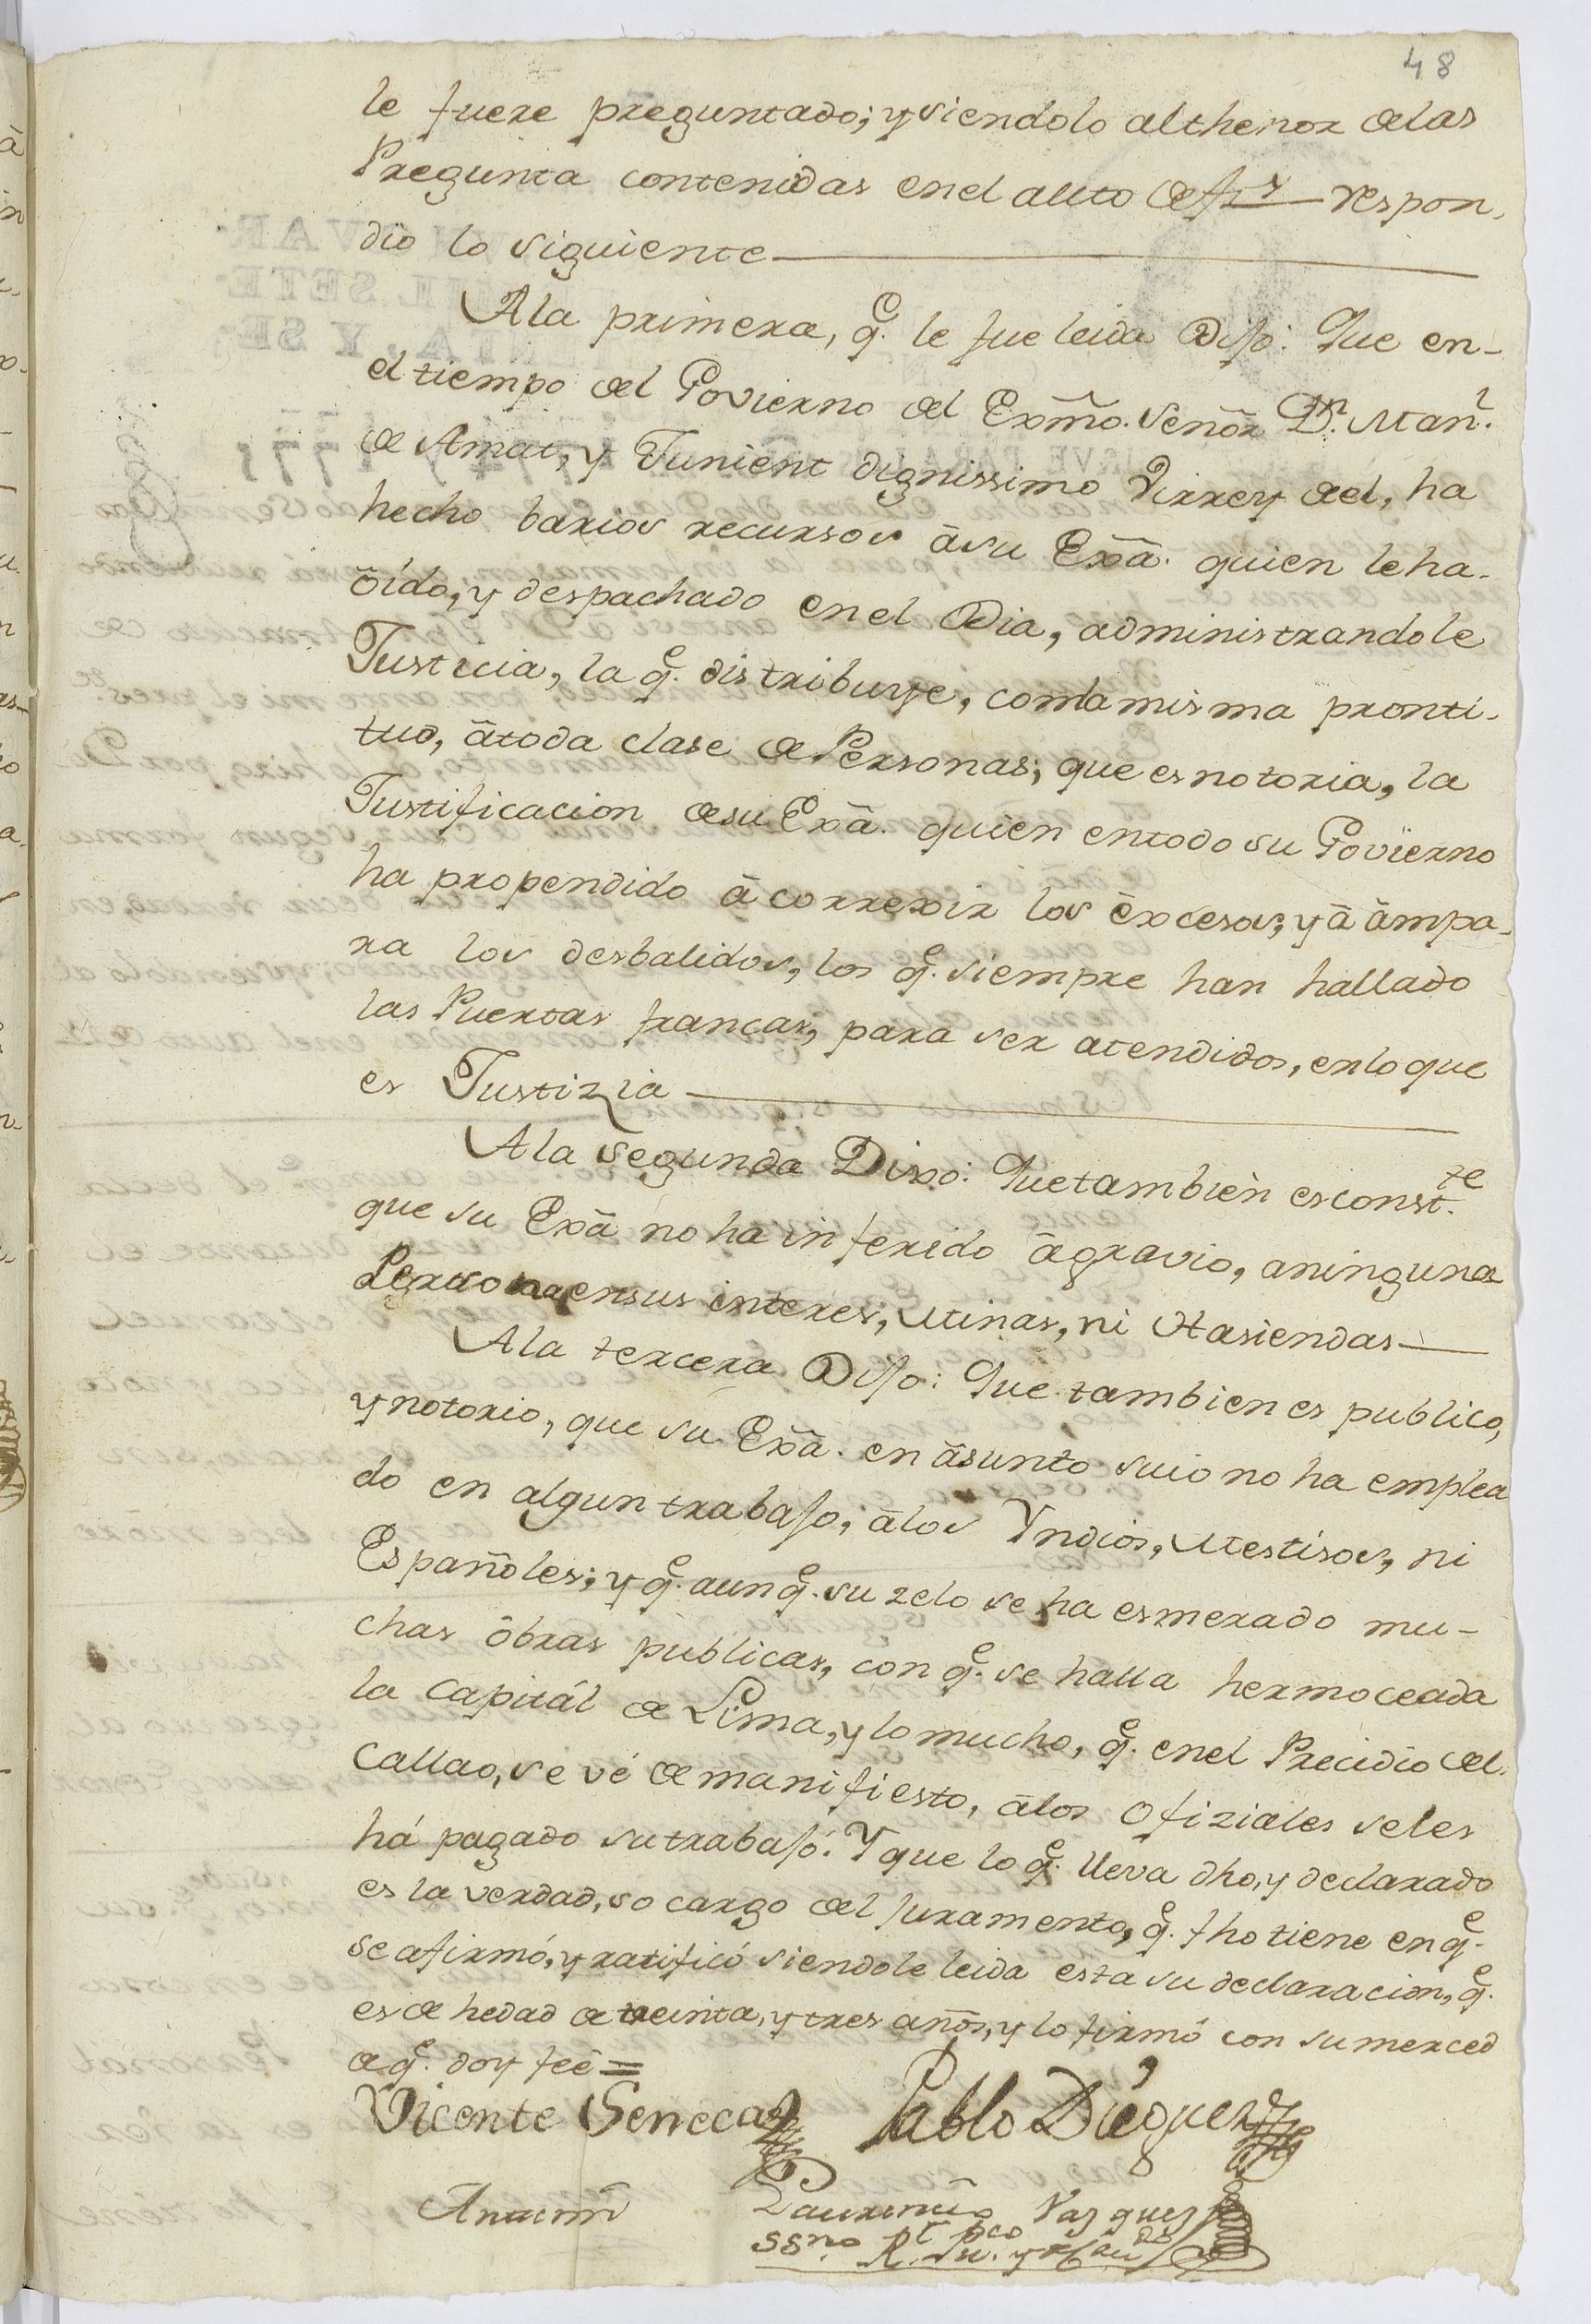 48
le fuere preguntado; y siendolo althenor delas
Pregunta contenidas enel auto de respon,
dio lo siguiente
Ala primera, q.e le fue leida Dijo: Que en-
el tiempo del Govierno del Exmo. Señor Dn. Man.l
de Amat, y Junient dignissimo Virrey del, ha
hecho barios recursos âsu Exâ. quien leha.
ôido, y despachado enel Dia, administrandole
Justicia, la q.e distribuye, conlamisma pronti-
tud, âtoda clase de Personas; que esnotoria, la
Justificacion desu Exâ. quien entodo su Govierno
ha propendido â correxir los êxcesos; y â âmpa-
ra los desbalidos, los q.e siempre han hallado
las Puertas francas, para ser atendidos, enloque
es Justizia
Ala Segunda Dixo: Quetambien esconst.te
que su Exâ no ha inferido âgravio, aninguna
Persona ensus interes, Minas, ni Hasiendas
Ala tercera Dijo: Que tambien es publico,
y notorio, que su Exâ. en âsunto suio no ha emplea
do en algun trabajo, âlos Yndios, Mestisos, ni
Españoles; y q.e aunq.e su zelo se ha esmerado mu-
chas ôbras publicas, con q.e se halla hermoceada
la Capitál de Lima, y lo mucho, q.e enel Precidio del
Callao, se vé de manifiesto, âlos Ofiziales seles
há pagado su trabajó. Y que lo q.e lleva dho, y declarado
es la verdad, so cargo del juramento, q.e fho tiene en q.e
se afirmó, y ratificó siendole leida esta su declaracion, q.e
es de hedad de treinta, y tres años, y lo firmó con su merced
de q.e doy feê =
Vicente Seneca Pablo Dieguez
Antemi Laurencio Vazquez
SSno